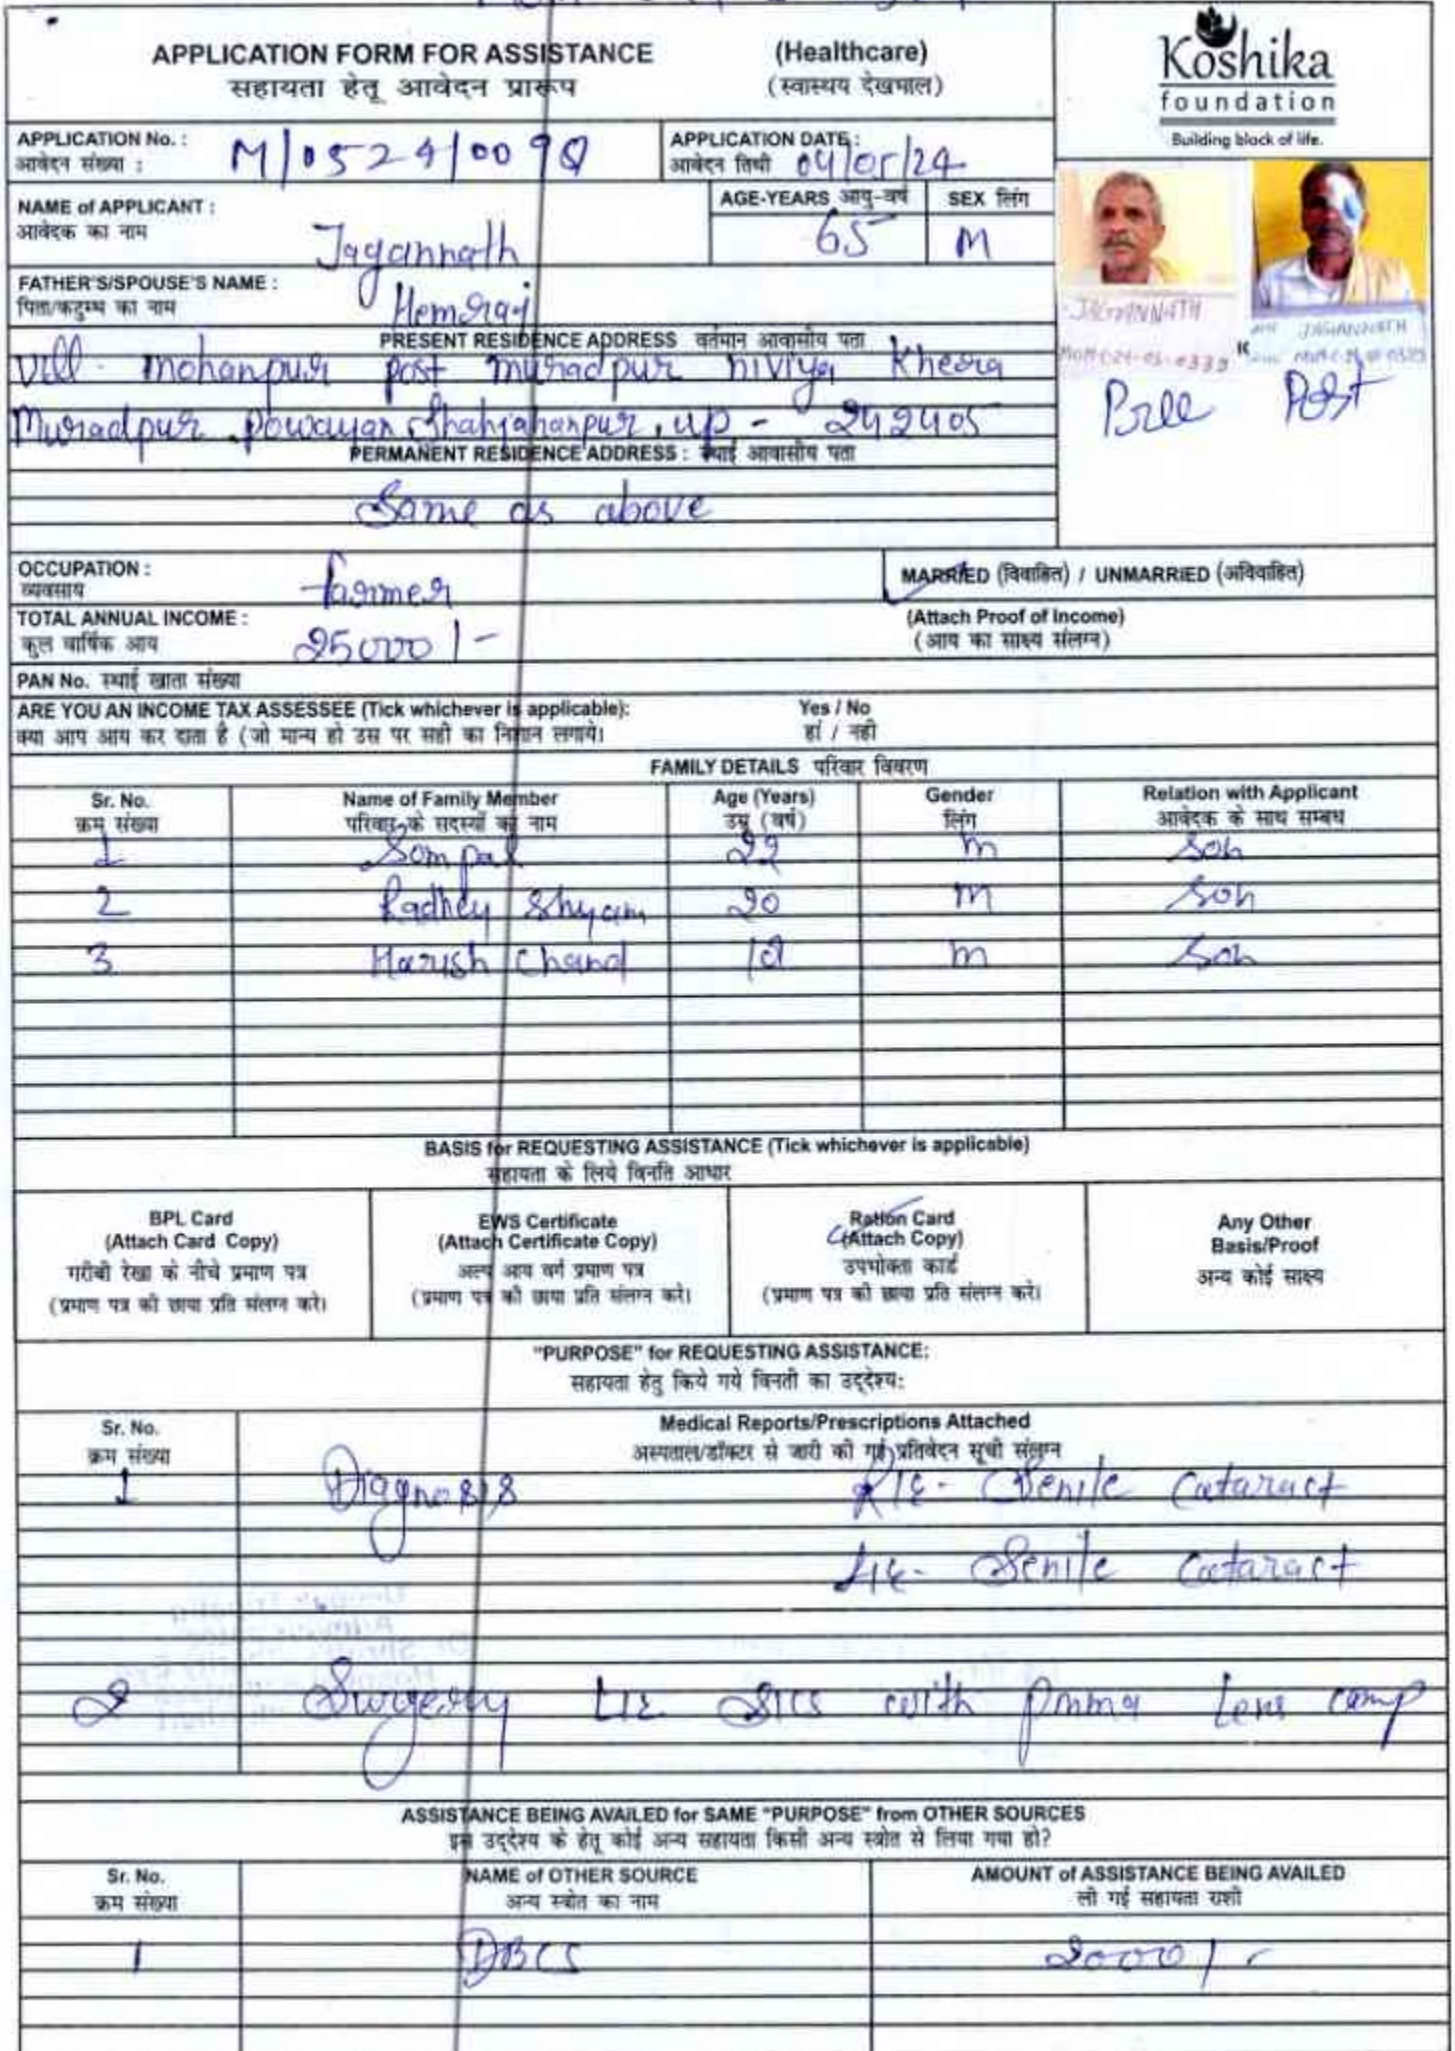 APPLICATION FORM FOR ASSISTANCE (Healthcare)
सहायता हेतू आवेदन प्रारूप (स्वास्थय देखभाल)
Koshika
foundation
Building block of life.
APPLICATION No. :
आवेदन संख्या : M/0524/0090
APPLICATION DATE :
आवेदन तिथी 04/05/24
NAME of APPLICANT :
आवेदक का नाम Jagannath
AGE-YEARS आयु-वर्ष 65
SEX लिंग M
FATHER'S/SPOUSE'S NAME :
पिता/कटुम्ब का नाम Hemraj
JAGANNATH
JAGANNATH
Pree Post
PRESENT RESIDENCE ADDRESS वर्तमान आवासीय पता
Vill- mohanpur post muradpur niviya Kheera
Muradpur Powayan Shahjahanpur, up - 242405
PERMANENT RESIDENCE ADDRESS : स्थाई आवासीय पता
Same as above
OCCUPATION :
व्यवसाय farmer
MARRIED (विवाहित) / UNMARRIED (अविवाहित)
TOTAL ANNUAL INCOME :
कुल वार्षिक आय 25000/-
(Attach Proof of Income)
(आय का साक्ष्य संलग्न)
PAN No. स्थाई खाता संख्या
ARE YOU AN INCOME TAX ASSESSEE (Tick whichever is applicable): Yes / No
क्या आप आय कर दाता है (जो मान्य हो उस पर सही का निशान लगाये। हां / नही
FAMILY DETAILS परिवार विवरण
Sr. No. Name of Family Member Age (Years) Gender Relation with Applicant
क्रम संख्या परिवार के सदस्यों का नाम उम्र (वर्ष) लिंग आवेदक के साथ सम्बध
1 Sompal 22 m Son
2 Radhey Shyam 20 m Son
3 Harish Chand m Son
BASIS for REQUESTING ASSISTANCE (Tick whichever is applicable)
सहायता के लिये विनति आधार
BPL Card
(Attach Card Copy)
गरीबी रेखा के नीचे प्रमाण पत्र
(प्रमाण पत्र की छाया प्रति संलग्न करे।
EWS Certificate
(Attach Certificate Copy)
अल्प आय वर्ग प्रमाण पत्र
(प्रमाण पत्र की छाया प्रति संलग्न करे।
Ration Card
(Attach Copy)
उपभोक्ता कार्ड
(प्रमाण पत्र की छाया प्रति संलग्न करे।
Any Other
Basis/Proof
अन्य कोई साक्ष्य
"PURPOSE" for REQUESTING ASSISTANCE:
सहायता हेतु किये गये विनती का उद्देश्य:
Sr. No. Medical Reports/Prescriptions Attached
क्रम संख्या अस्पताल/डॉक्टर से जारी की गई प्रतिवेदन सूची संलग्न
1 Diagnosis R/E- Senile Cataract
L/E- Senile Cataract
2 Surgery L/E SICS with Pmma Lens camp
ASSISTANCE BEING AVAILED for SAME "PURPOSE" from OTHER SOURCES
इस उद्देश्य के हेतू कोई अन्य सहायता किसी अन्य स्त्रोत से लिया गया हो?
Sr. No. NAME of OTHER SOURCE AMOUNT of ASSISTANCE BEING AVAILED
क्रम संख्या अन्य स्त्रोत का नाम ली गई सहायता राशी
1 DBCS 2000/-